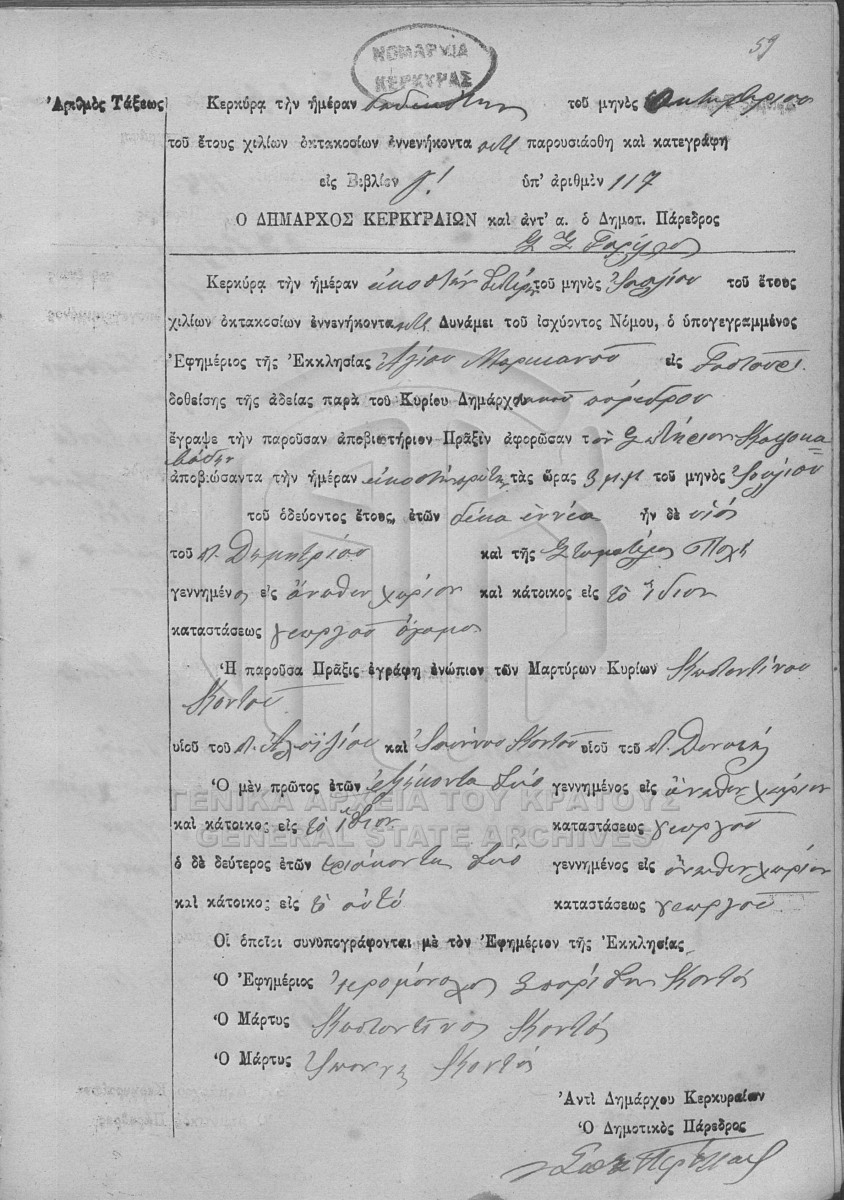 59
ΝΟΜΑΡΧΙΑ
ΚΕΡΚΥΡΑΣ
Ἀριθμὸς Τάξεως
Κερκύρᾳ τὴν ἡμέραν δωδεκάτην τοῦ μηνὸς Ὀκτωβρίου
τοῦ ἔτους χιλίων ὀκτακοσίων ἐννενήκοντα παρουσιάσθη καὶ κατεγράφη
εἰς Βιβλίον γ! ὑπ' ἀριθμὸν 117
Ο ΔΗΜΑΡΧΟΣ ΚΕΡΚΥΡΑΙΩΝ καὶ ἀντ' α. ὁ Δημοτ. Πάρεδρος
Κερκύρᾳ τὴν ἡμέραν εἰκοστὴν δευτέρα τοῦ μηνὸς Ἰουλίου τοῦ ἔτους
χιλίων ὀκτακοσίων ἐννενήκοντα Δυνάμει τοῦ ἰσχύοντος Νόμου, ὁ ὑπογεγραμμένος
Ἐφημέριος τῆς Ἐκκλησίας Ἁγίου Μαρκιανοῦ εἰς Γαστούρι
δοθείσης τῆς ἀδείας παρὰ τοῦ Κυρίου Δημάρχου παρέδρου
ἔγραψε τὴν παροῦσαν ἀποβιωτήριον Πρᾶξιν ἀφορῶσαν τὸν Σωτήριον
ἀποβιώσαντα τὴν ἡμέραν εἰκοστὴ πρώτη τὰς ὥρας 3 μ.μ τοῦ μηνὸς Ἰουλίου
τοῦ ὁδεύοντος ἔτους, ἐτῶν δέκα ἐννέα ἦν δὲ υἱός
τοῦ π. Δημητρίου καὶ τῆς Σταματέλας
γεννημένος εἰς ἄνωθεν χωρίον καὶ κάτοικος εἰς τὸ ἴδιον
καταστάσεως γεωργοῦ ἄγαμος
Ἡ παροῦσα Πρᾶξις ἐγράφη ἐνώπιον τῶν Μαρτύρων Κυρίων Κωσταντίνου
Κοντοῦ
υἱοῦ τοῦ π. Ἀλοϊζίου καὶ Ἰωάννου Κοντοῦ υἱοῦ τοῦ π.
Ὁ μὲν πρῶτος ἐτῶν ἑξήκοντα δύο γεννημένος εἰς ἄνωθεν χωρίον
καὶ κάτοικος εἰς τὸ ἴδιον καταστάσεως γεωργοῦ
ὁ δὲ δεύτερος ἐτῶν τριάκοντα δύο γεννημένος εἰς ἄνωθεν χωρίον
καὶ κάτοικος εἰς τὸ αὐτό καταστάσεως γεωργοῦ
Οἱ ὁποῖοι συνυπογράφονται μὲ τὸν Ἐφημέριον τῆς Ἐκκλησίας
Ὁ Ἐφημέριος Ἱερομόναχος Σπυρίδων Κοντός
Ὁ Μάρτυς Κωσταντίνος Κοντός
Ὁ Μάρτυς Ἰωάννης Κοντός
Ἀντὶ Δημάρχου Κερκυραίων
Ὁ Δημοτικὸς Πάρεδρος
ΓΕΝΙΚΑ ΑΡΧΕΙΑ ΤΟΥ ΚΡΑΤΟΥΣ
GENERAL STATE ARCHIVES